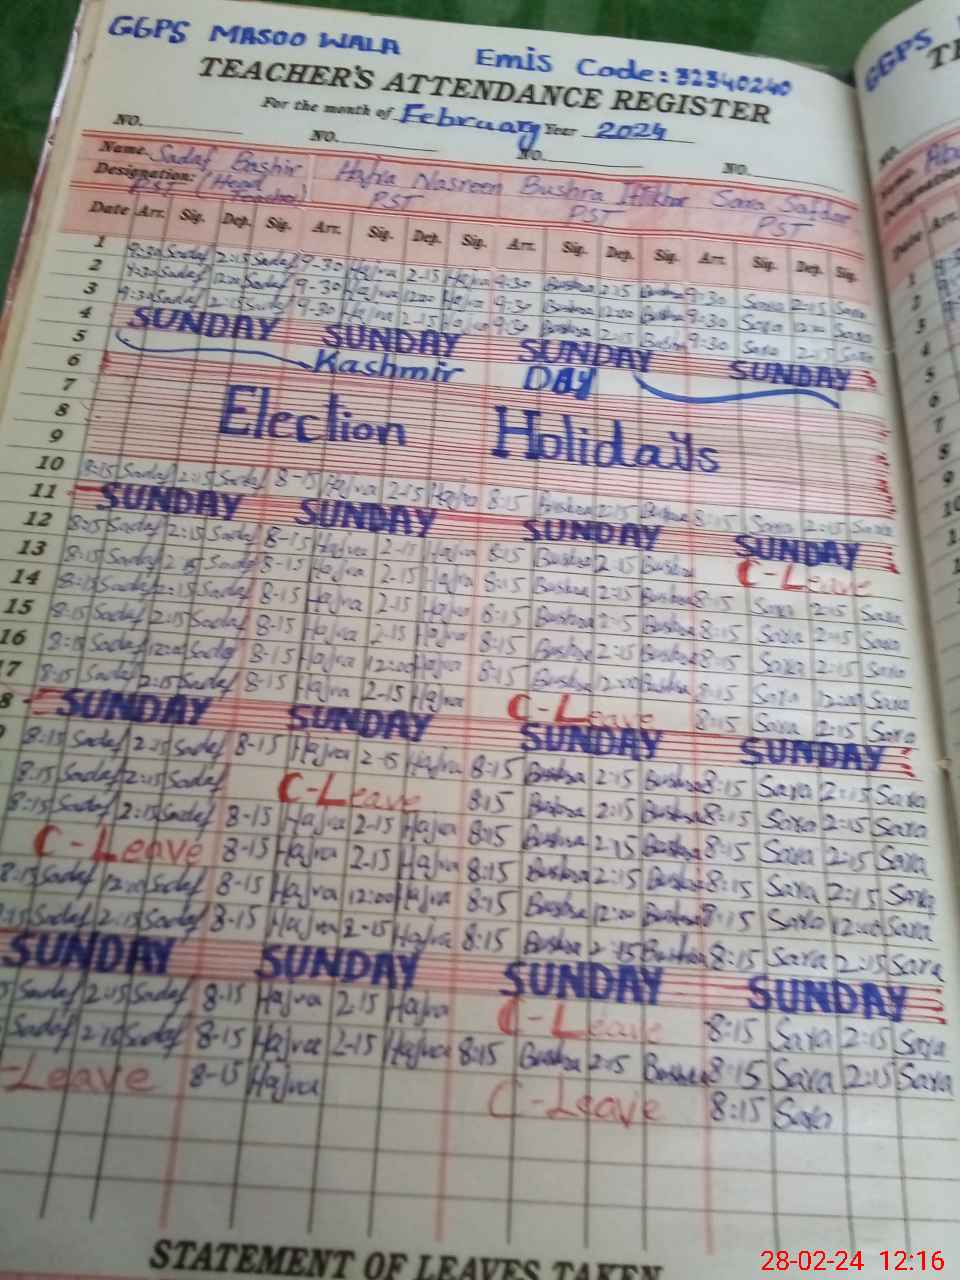 GGPS MASOO WALA Emis Code: 32340240
TEACHER'S ATTENDANCE REGISTER
For the month of February Year 2024
NO. NO. NO. NO.
Name. Sadaf Bashir Hajra Nasreen Bushra Iftikhar Sara Safdar
Designation: PST (Head Teacher) PST PST PST
Date Arr. Sig. Dep. Sig. Arr. Sig. Dep. Sig. Arr. Sig. Dep. Sig. Arr. Sig. Dep. Sig.
1 9:30 Sadaf 2:15 Sadaf 9-30 Hajra 2-15 Hajra 9:30 Bushra 2:15 Bushra 9:30 Sara 2:15 Sara
2 9:30 Sadaf 12:00 Sadaf 9-30 Hajra 12:00 Hajra 9:30 Bushra 12:00 Bushra 9:30 Sara 12:00 Sara
3 9:30 Sadaf 2:15 Sadaf 9-30 Hajra 2-15 Hajra 9:30 Bushra 2:15 Bushra 9:30 Sara 2:15 Sara
4 SUNDAY SUNDAY SUNDAY SUNDAY
5 Kashmir DAY
6
7
8 Election Holidays
9
10 8:15 Sadaf 2:15 Sadaf 8-15 Hajra 2-15 Hajra 8:15 Bushra 2:15 Bushra 8:15 Sara 2:15 Sara
11 SUNDAY SUNDAY SUNDAY SUNDAY
12 8:15 Sadaf 2:15 Sadaf 8-15 Hajra 2-15 Hajra 8:15 Bushra 2:15 Bushra C-Leave
13 8:15 Sadaf 2:15 Sadaf 8-15 Hajra 2-15 Hajra 8:15 Bushra 2:15 Bushra 8:15 Sara 2:15 Sara
14 8:15 Sadaf 2:15 Sadaf 8-15 Hajra 2-15 Hajra 8:15 Bushra 2:15 Bushra 8:15 Sara 2:15 Sara
15 8:15 Sadaf 2:15 Sadaf 8-15 Hajra 2-15 Hajra 8:15 Bushra 2:15 Bushra 8:15 Sara 2:15 Sara
16 8:15 Sadaf 12:00 Sadaf 8-15 Hajra 12:00 Hajra 8:15 Bushra 12:00 Bushra 8:15 Sara 12:00 Sara
17 8:15 Sadaf 2:15 Sadaf 8-15 Hajra 2-15 Hajra C-Leave 8:15 Sara 2:15 Sara
8 SUNDAY SUNDAY SUNDAY SUNDAY
8:15 Sadaf 2:15 Sadaf 8-15 Hajra 2-15 Hajra 8:15 Bushra 2:15 Bushra 8:15 Sara 2:15 Sara
8:15 Sadaf 2:15 Sadaf C-Leave 8:15 Bushra 2:15 Bushra 8:15 Sara 2:15 Sara
8:15 Sadaf 2:15 Sadaf 8-15 Hajra 2-15 Hajra 8:15 Bushra 2:15 Bushra 8:15 Sara 2:15 Sara
C-Leave 8-15 Hajra 2-15 Hajra 8:15 Bushra 2:15 Bushra 8:15 Sara 2:15 Sara
8:15 Sadaf 12:00 Sadaf 8-15 Hajra 12:00 Hajra 8:15 Bushra 12:00 Bushra 8:15 Sara 12:00 Sara
:15 Sadaf 2:15 Sadaf 8-15 Hajra 2-15 Hajra 8:15 Bushra 2:15 Bushra 8:15 Sara 2:15 Sara
SUNDAY SUNDAY SUNDAY SUNDAY
5 Sadaf 2:15 Sadaf 8-15 Hajra 2-15 Hajra C-Leave 8:15 Sara 2:15 Sara
Sadaf 2:15 Sadaf 8-15 Hajra 2-15 Hajra 8:15 Bushra 2:15 Bushra 8:15 Sara 2:15 Sara
-Leave 8-15 Hajra C-Leave 8:15 Sara
STATEMENT OF LEAVES TAKEN
28-02-24 12:16